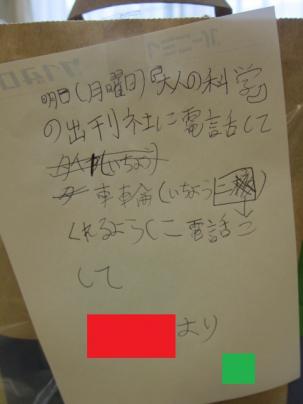 明日(月曜日)大人の科学
の出刊社に電話して
車車輪(いちように
くれるように電話こ
して
より